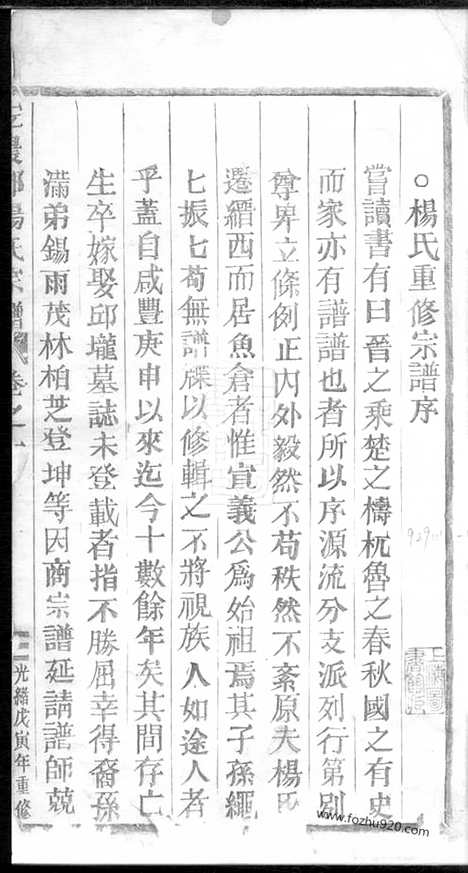 ○楊氏重修宗譜序
嘗讀書有曰晉之乘楚之檮杌魯之春秋國之有史
而家亦有譜譜也者所以序源流分支派列行第別
尊卑立條例正內外毅然不苟秩然不紊原夫楊氏
遷縉西而居魚倉者惟宣義公爲始祖焉其子孫繩
匕振匕苟無譜牒以修輯之不將視族人如途人者
乎蓋自咸豐庚申以來迄今十數餘年矣其間存亡
生卒嫁娶邱壠墓誌未登載者指不勝屈幸得裔孫
滿弟錫雨茂林柏芝登坤等因商宗譜延請譜師兢
楊氏宗譜 卷之一
光緖戊寅年重修
www.fozhu920.com